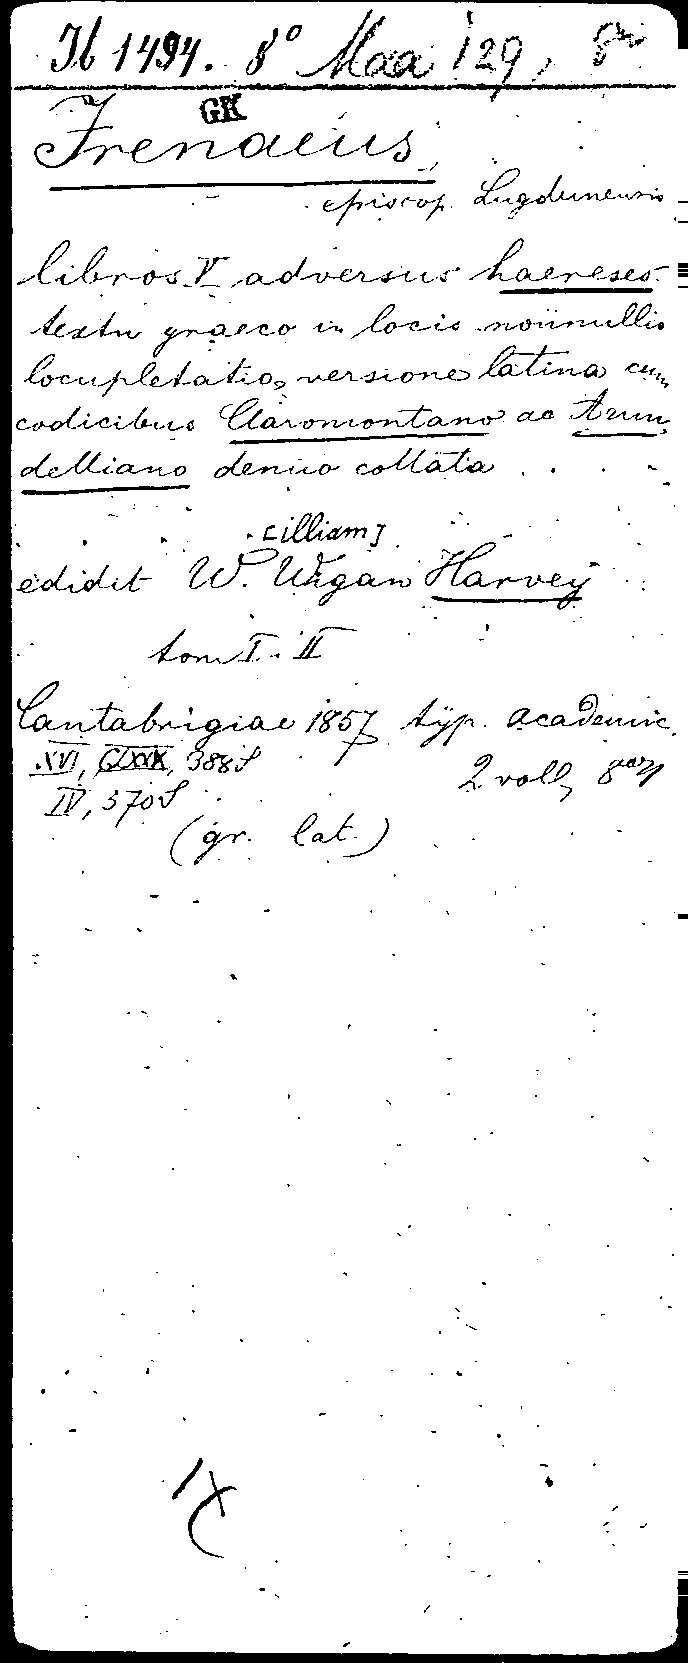 Ib 1494. 8° Maa 129, 8°
GK
Irenaeus,
episcop. Lugdunensis
libros V adversus haereses
textu graeco in locis nonnullis
locupletatio, versione latina cum
codicibus Claromontano ac Arun,
delliano denuo collata
[illiam]
edidit W. Wigan Harvey
tom I. II
Cantabrigiae 1857 typ. academic.
XVI, CLXXX, 388 S
2 voll, 8°
IV, 570 S
(gr. lat.)